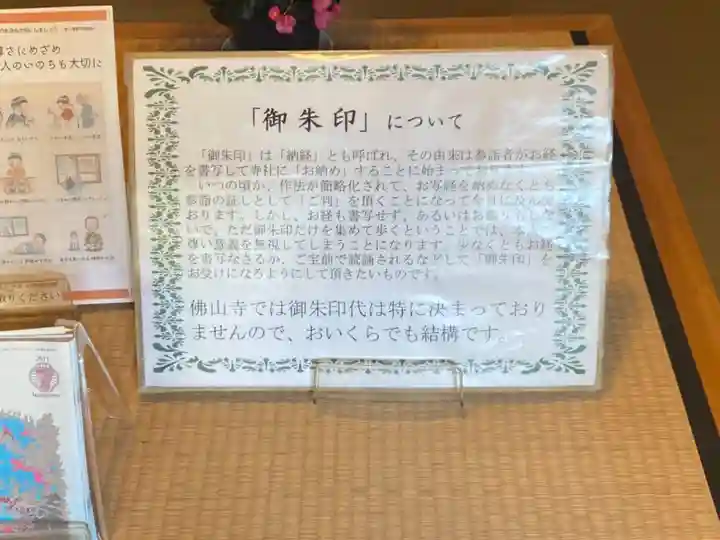 さにめざめ
人のいのちも大切に
「御朱印」について
「御朱印」は「納経」とも呼ばれ、その由来は参詣者がお経
を書写して寺社に「お納め」することに始まってお
いつの頃か、作法が簡略化されて、お写経を納めなくとも
参詣の証しとして「ご判」を頂くことになって今日に及んで
おります。しかし、お経も書写せず、あるいはお参りもしな
いで、ただ御朱印だけを集めて歩くということでは、本
尊い意義を無視してしまうことになります。少なくともお経
を書写なさるか、ご宝前で読誦されるなどして「御朱印」を
お受けになるようにして頂きたいものです。
佛山寺では御朱印代は特に決まっており
ませんので、おいくらでも結構です。
りください